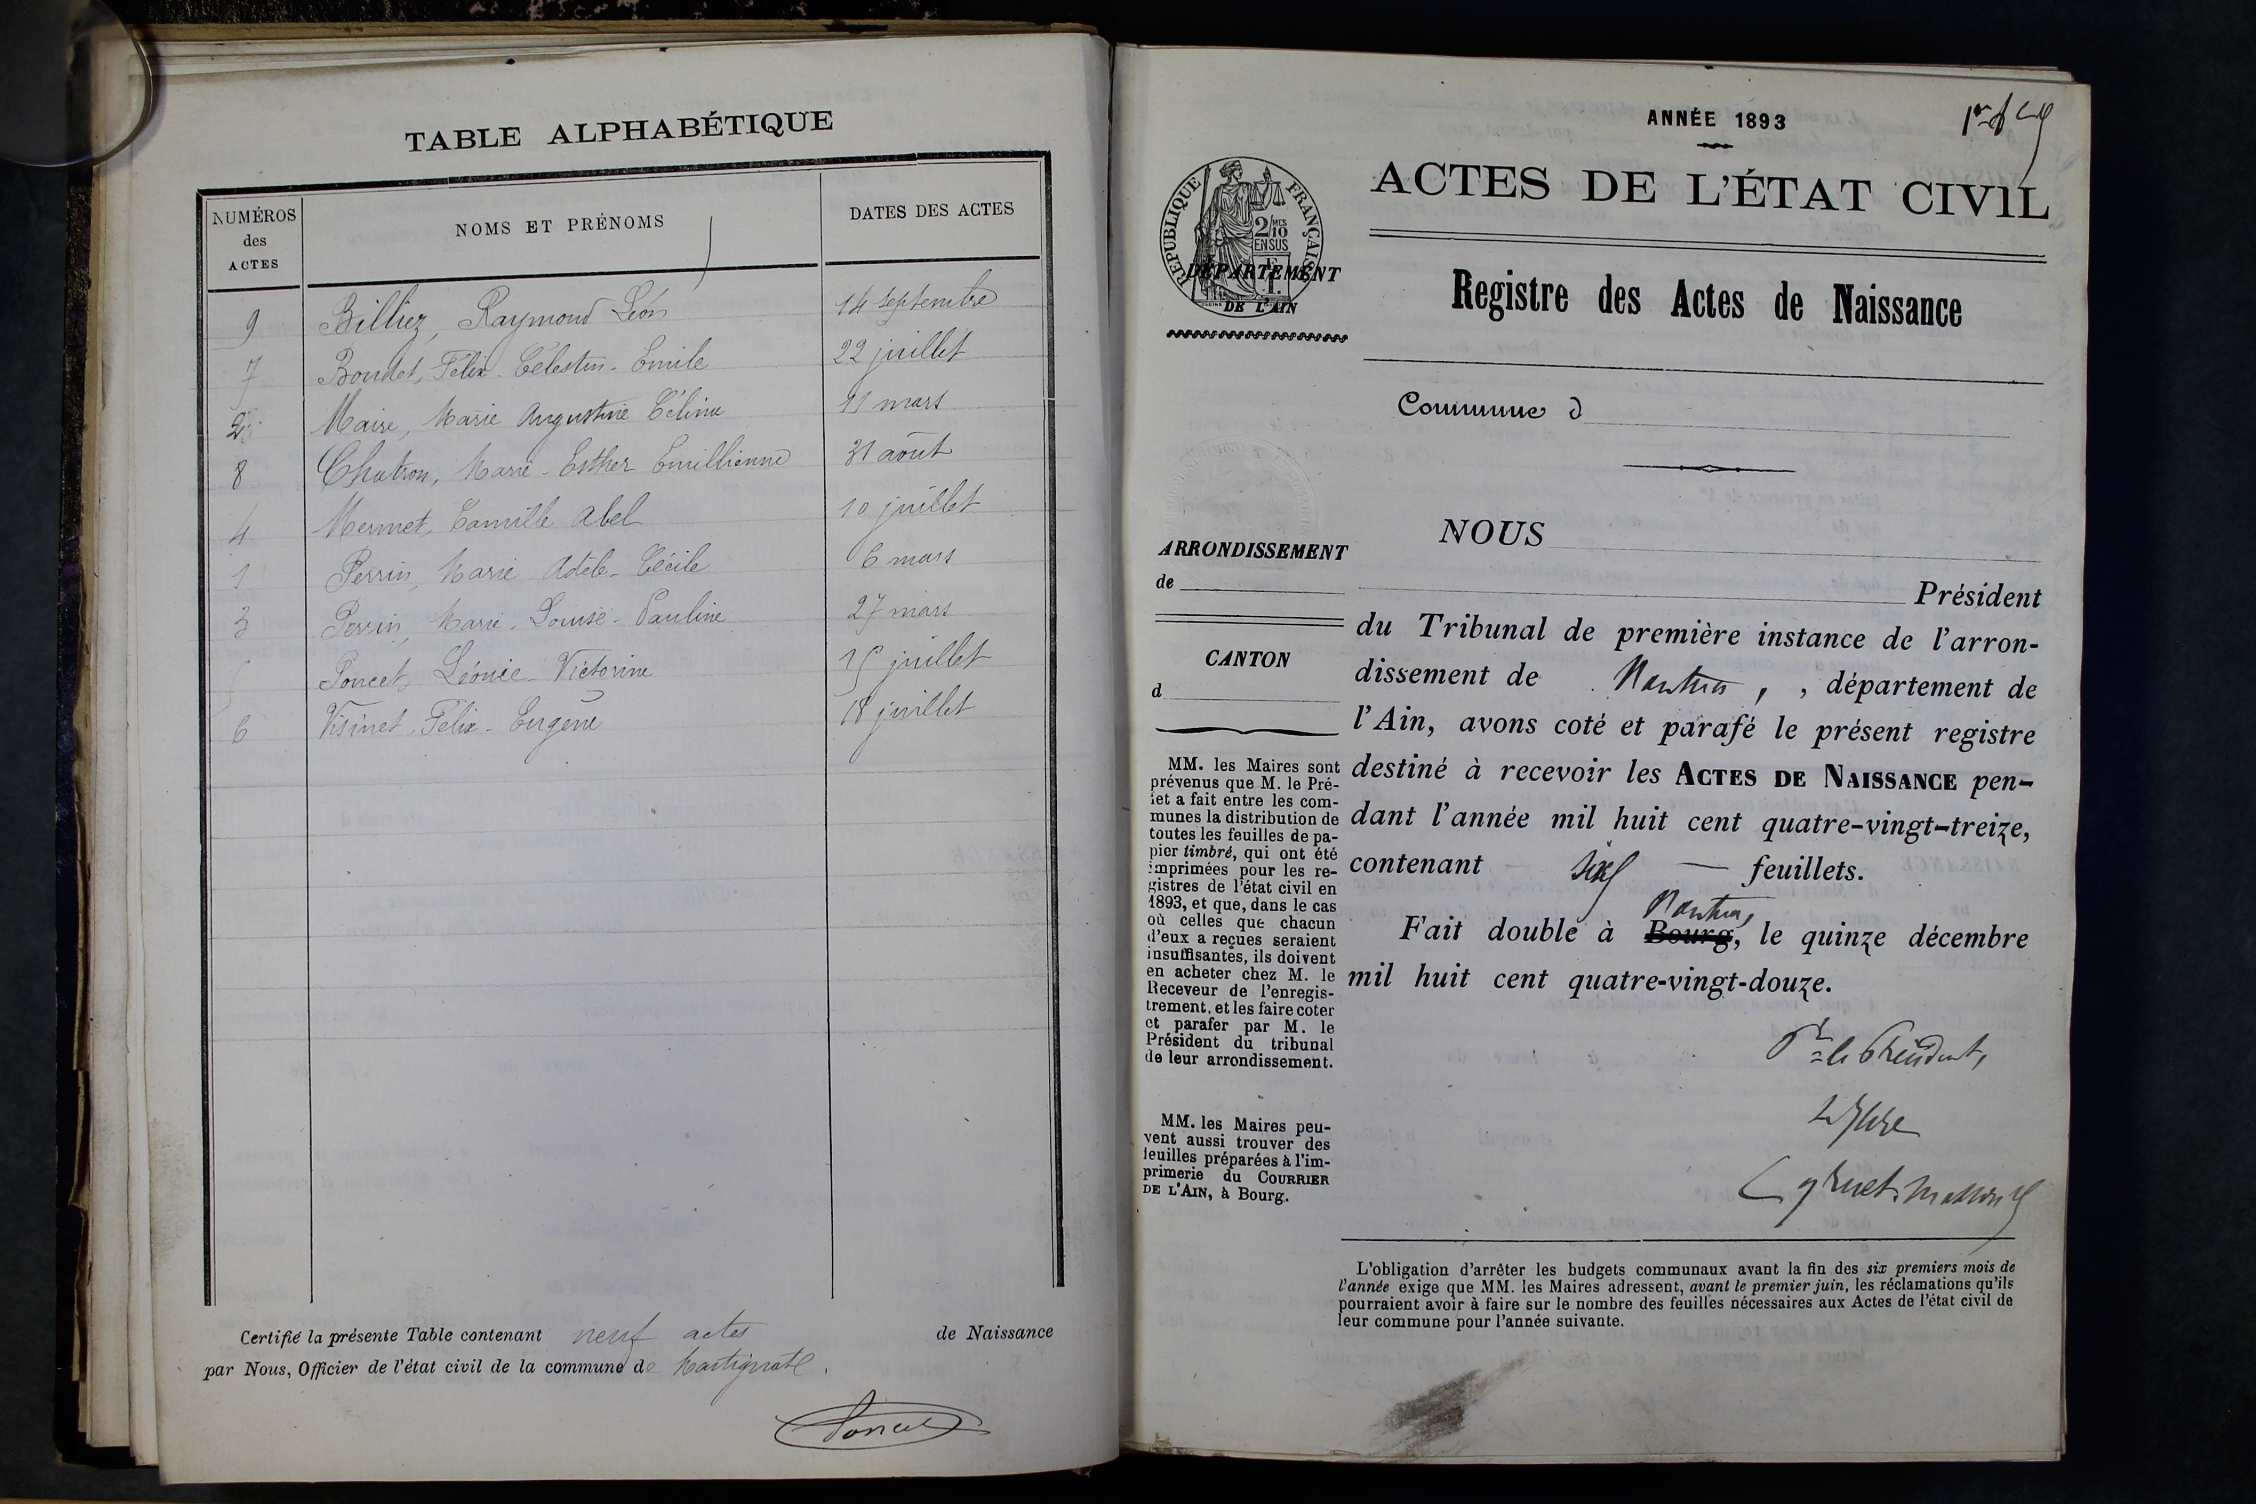 TABLE ALPHABÉTIQUE
NUMÉROS
des
ACTES
NOMS ET PRÉNOMS
DATES DES ACTES
9 Billiez, Raymond Léon 14 septembre
7 Boudet, Félix - Célestin - Emile 22 juillet
2 Maire, Marie Augustine Céline 11 mars
8 Chatron, Marie - Esther Emillienne 31 août
4 Mermet, Camille Abel 10 juillet
1 Perrin, Marie Adèle - Cécile 6 mars
3 Perrin, Marie - Louise - Pauline 27 mars
5 Poncet, Léonie - Victorine 15 juillet
6 Visinet, Félix - Eugène 18 juillet
Certifié la présente Table contenant neuf actes de Naissance
par Nous, Officier de l'état civil de la commune de Martignat.
Poncet
ANNÉE 1893
ACTES DE L'ÉTAT CIVIL
RÉPUBLIQUE FRANÇAISE
2/10
EN SUS
DÉPARTEMENT
DE L'AIN
Registre des Actes de Naissance
Commune d
ARRONDISSEMENT
de
CANTON
d
MM. les Maires sont
prévenus que M. le Pré-
fet a fait entre les com-
munes la distribution de
toutes les feuilles de pa-
pier timbré, qui ont été
imprimées pour les re-
gistres de l'état civil en
1893, et que, dans le cas
où celles que chacun
d'eux a reçues seraient
insuffisantes, ils doivent
en acheter chez M. le
Receveur de l'enregis-
trement, et les faire coter
et parafer par M. le
Président du tribunal
de leur arrondissement.
MM. les Maires peu-
vent aussi trouver des
feuilles préparées à l'im-
primerie du COURRIER
DE L'AIN, à Bourg.
NOUS
Président
du Tribunal de première instance de l'arron-
dissement de Nantua, , département de
l'Ain, avons coté et parafé le présent registre
destiné à recevoir les ACTES DE NAISSANCE pen-
dant l'année mil huit cent quatre-vingt-treize,
contenant — six — feuillets.
Nantua,
Fait double à Bourg, le quinze décembre
mil huit cent quatre-vingt-douze.
Pr le Président,
L'obligation d'arrêter les budgets communaux avant la fin des six premiers mois de
l'année exige que MM. les Maires adressent, avant le premier juin, les réclamations qu'ils
pourraient avoir à faire sur le nombre des feuilles nécessaires aux Actes de l'état civil de
leur commune pour l'année suivante.